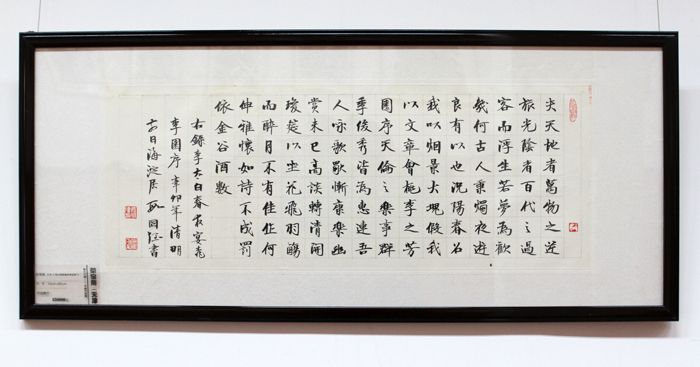 夫天地者萬物之逆
旅光陰者百代之過
客而浮生若夢為歡
幾何古人秉燭夜遊
良有以也況陽春召
我以烟景大塊假我
以文章會桃李之芳
園序天倫之樂事群
季俊秀皆為惠連吾
人詠歌獨慚康樂幽
賞未已高談轉清開
瓊筵以坐花飛羽觴
而醉月不有佳作何
伸雅懷如詩不成罰
依金谷酒數
右錄李太白春夜宴桃
李園序辛卯年清明
前日海淀居國書